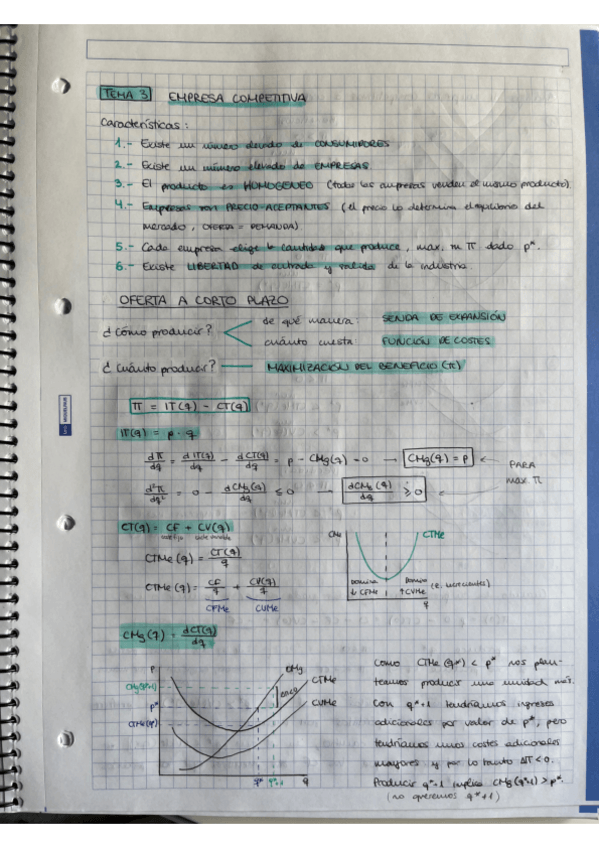 TEMA 3 EMPRESA COMPETITIVA
Características:
1.- Existe un número elevado de CONSUMIDORES
2.- Existe un número elevado de EMPRESAS
3.- El producto es HOMOGENEO (todas las empresas venden el mismo producto)
4.- Empresas son PRECIO-ACEPTANTES (el precio lo determina el equilibrio del
mercado, OFERTA = DEMANDA)
5.- Cada empresa elige la cantidad que produce, max. su π dado p*.
6.- Existe LIBERTAD de entrada y salida de la industria.
OFERTA A CORTO PLAZO
¿Cómo producir? de qué manera: SENDA DE EXPANSIÓN
cuánto cuesta: FUNCIÓN DE COSTES
¿Cuánto producir? MAXIMIZACIÓN DEL BENEFICIO (π)
π = IT(q) - CT(q)
IT(q) = p · q
dπ/dq = dIT(q)/dq - dCT(q)/dq = p - CMg(q) = 0 → CMg(q) = p PARA
d²π/dq² = 0 - dCMg(q)/dq ≤ 0 → dCMg(q)/dq ≥ 0 max. π
CT(q) = CF + CV(q)
coste fijo coste variable
CTMe(q) = CT(q)/q
CTMe(q) = CF/q + CV(q)/q
CFMe CVMe
CMe CTMe
Domina Domina (R. decrecientes)
↓CFMe ↑CVMe
q
CMg(q) = dCT(q)/dq
P CMg
CTMe
CVMe
CMg(q*+1)
p*
CTMe(q*)
q* q*+1 q
Como CTMe(q*) < p* nos plan-
teamos producir una unidad más.
Con q*+1 tendríamos ingresos
adicionales por valor de p*, pero
tendríamos unos costes adicionales
mayores y por lo tanto Δπ<0.
Producir q*+1 implica CMg(q*+1)>p*.
(no queremos q*+1)